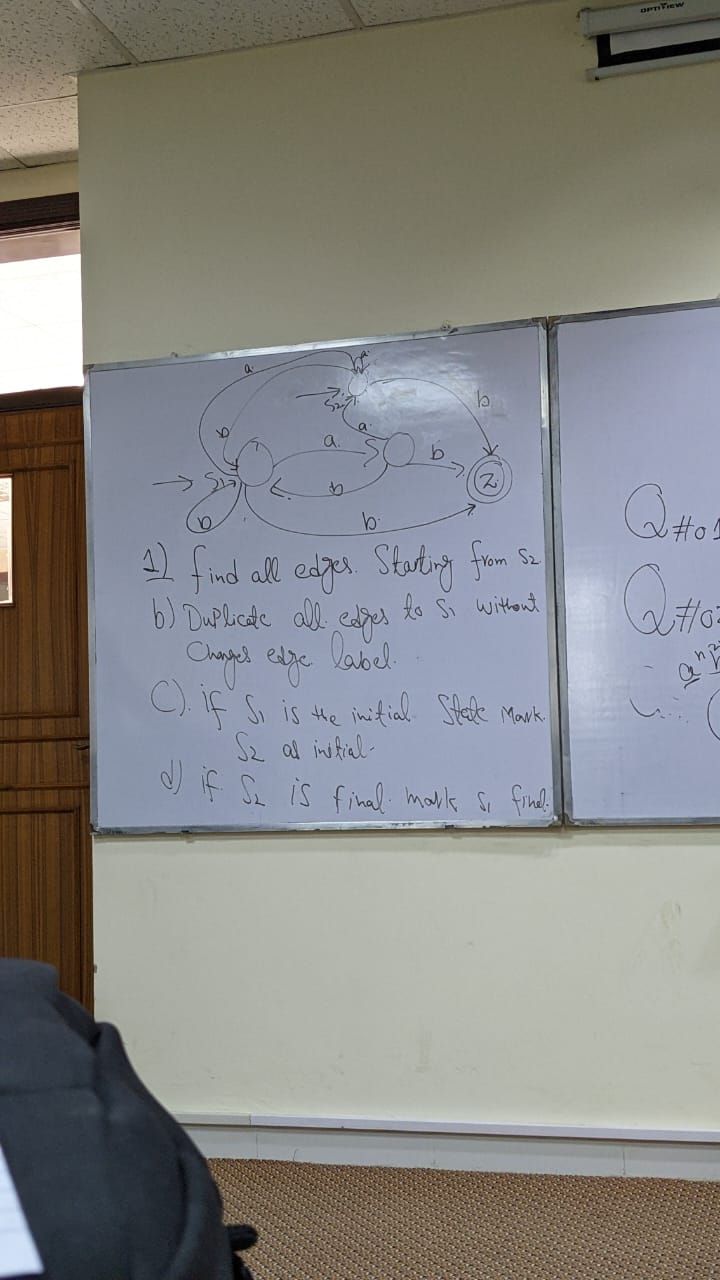 OPTIVIEW
a
a
b
b
S2
a
a
b
S1
b
Z
b
b
1) find all edges. Starting from S2
b) Duplicate all edges to S1 without
Changes edge label.
C). if S1 is the initial State Mark.
S2 as initial-
d) if S2 is final mark S1 final.
Q#01
Q#02